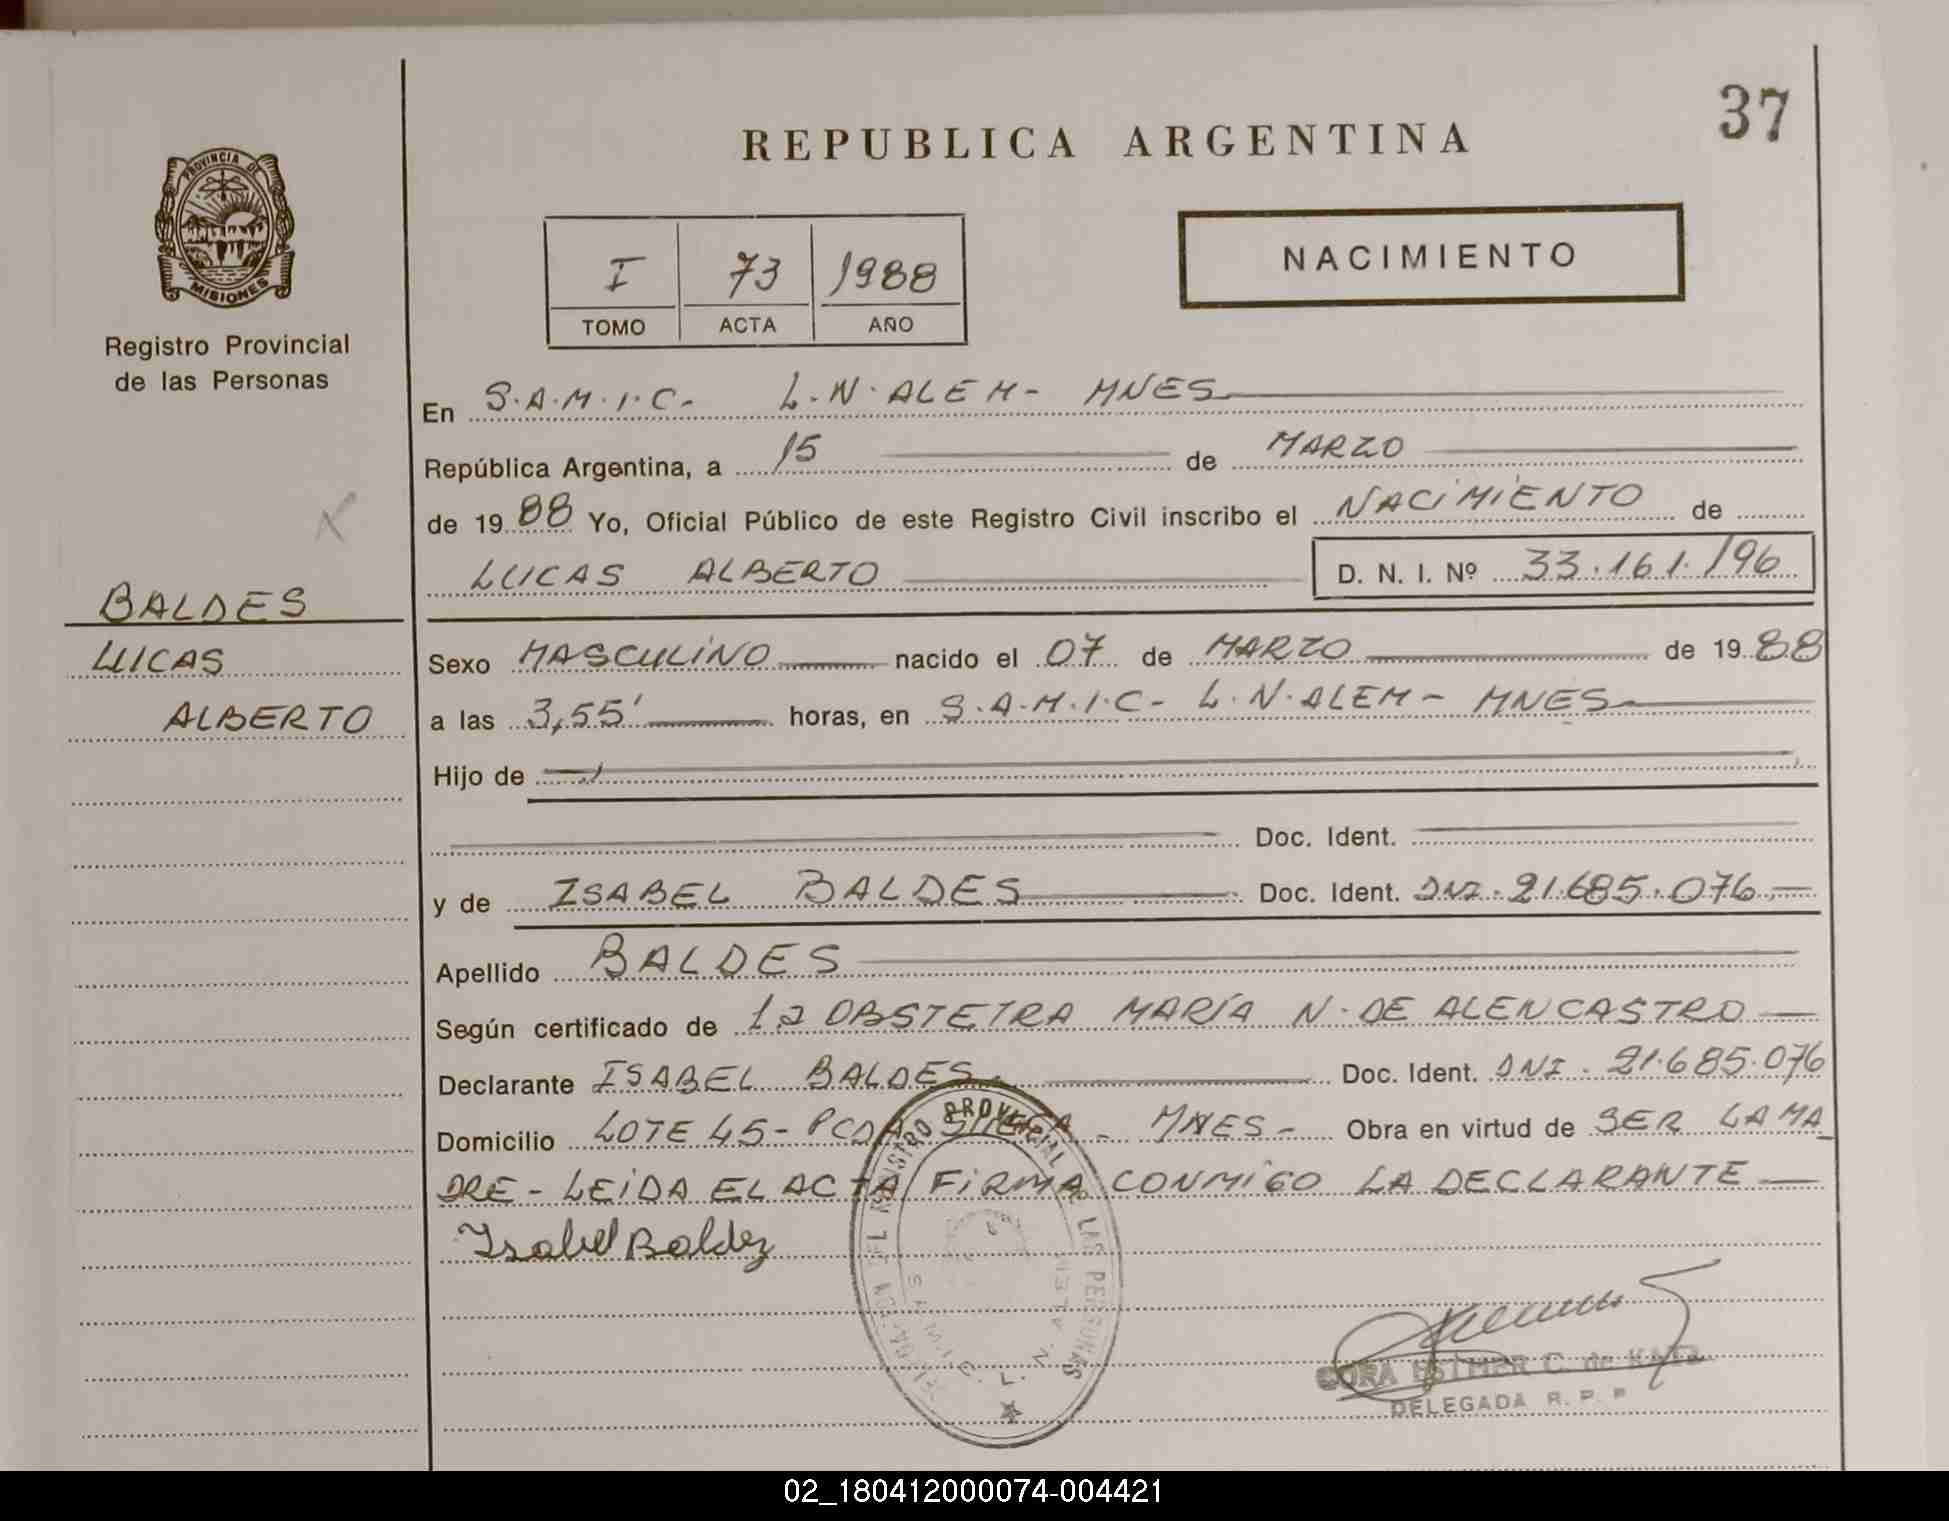 37
REPUBLICA ARGENTINA
PROVINCIA DE
MISIONES
I 73 1988
TOMO ACTA AÑO
NACIMIENTO
Registro Provincial
de las Personas
BALDES
LUCAS
ALBERTO
En S.A.M.I.C- L.N.ALEM- MNES
República Argentina, a 15 de MARZO
de 19 88 Yo, Oficial Público de este Registro Civil inscribo el NACIMIENTO de
LUCAS ALBERTO D. N. I. Nº 33.161.196
Sexo MASCULINO nacido el 07 de MARZO de 19 88
a las 3,55' horas, en S.A.M.I.C- L.N.ALEM- MNES
Hijo de
Doc. Ident.
y de ISABEL BALDES Doc. Ident. DNI. 21.685.076
Apellido BALDES
Según certificado de la OBSTETRA MARÍA N. DE ALENCASTRO
Declarante ISABEL BALDES Doc. Ident. DNI. 21.685.076
Domicilio LOTE 45- PCDA - MNES- Obra en virtud de SER LA MA
DRE- LEIDA EL ACTA FIRMA CONMIGO LA DECLARANTE
Isabel Baldez
DEL REGISTRO PROVINCIAL DE LAS PERSONAS
S.A.M.I.C. L. N. ALEM
CORA ESTHER C. de KATZ
DELEGADA R. P. P.
02_180412000074-004421